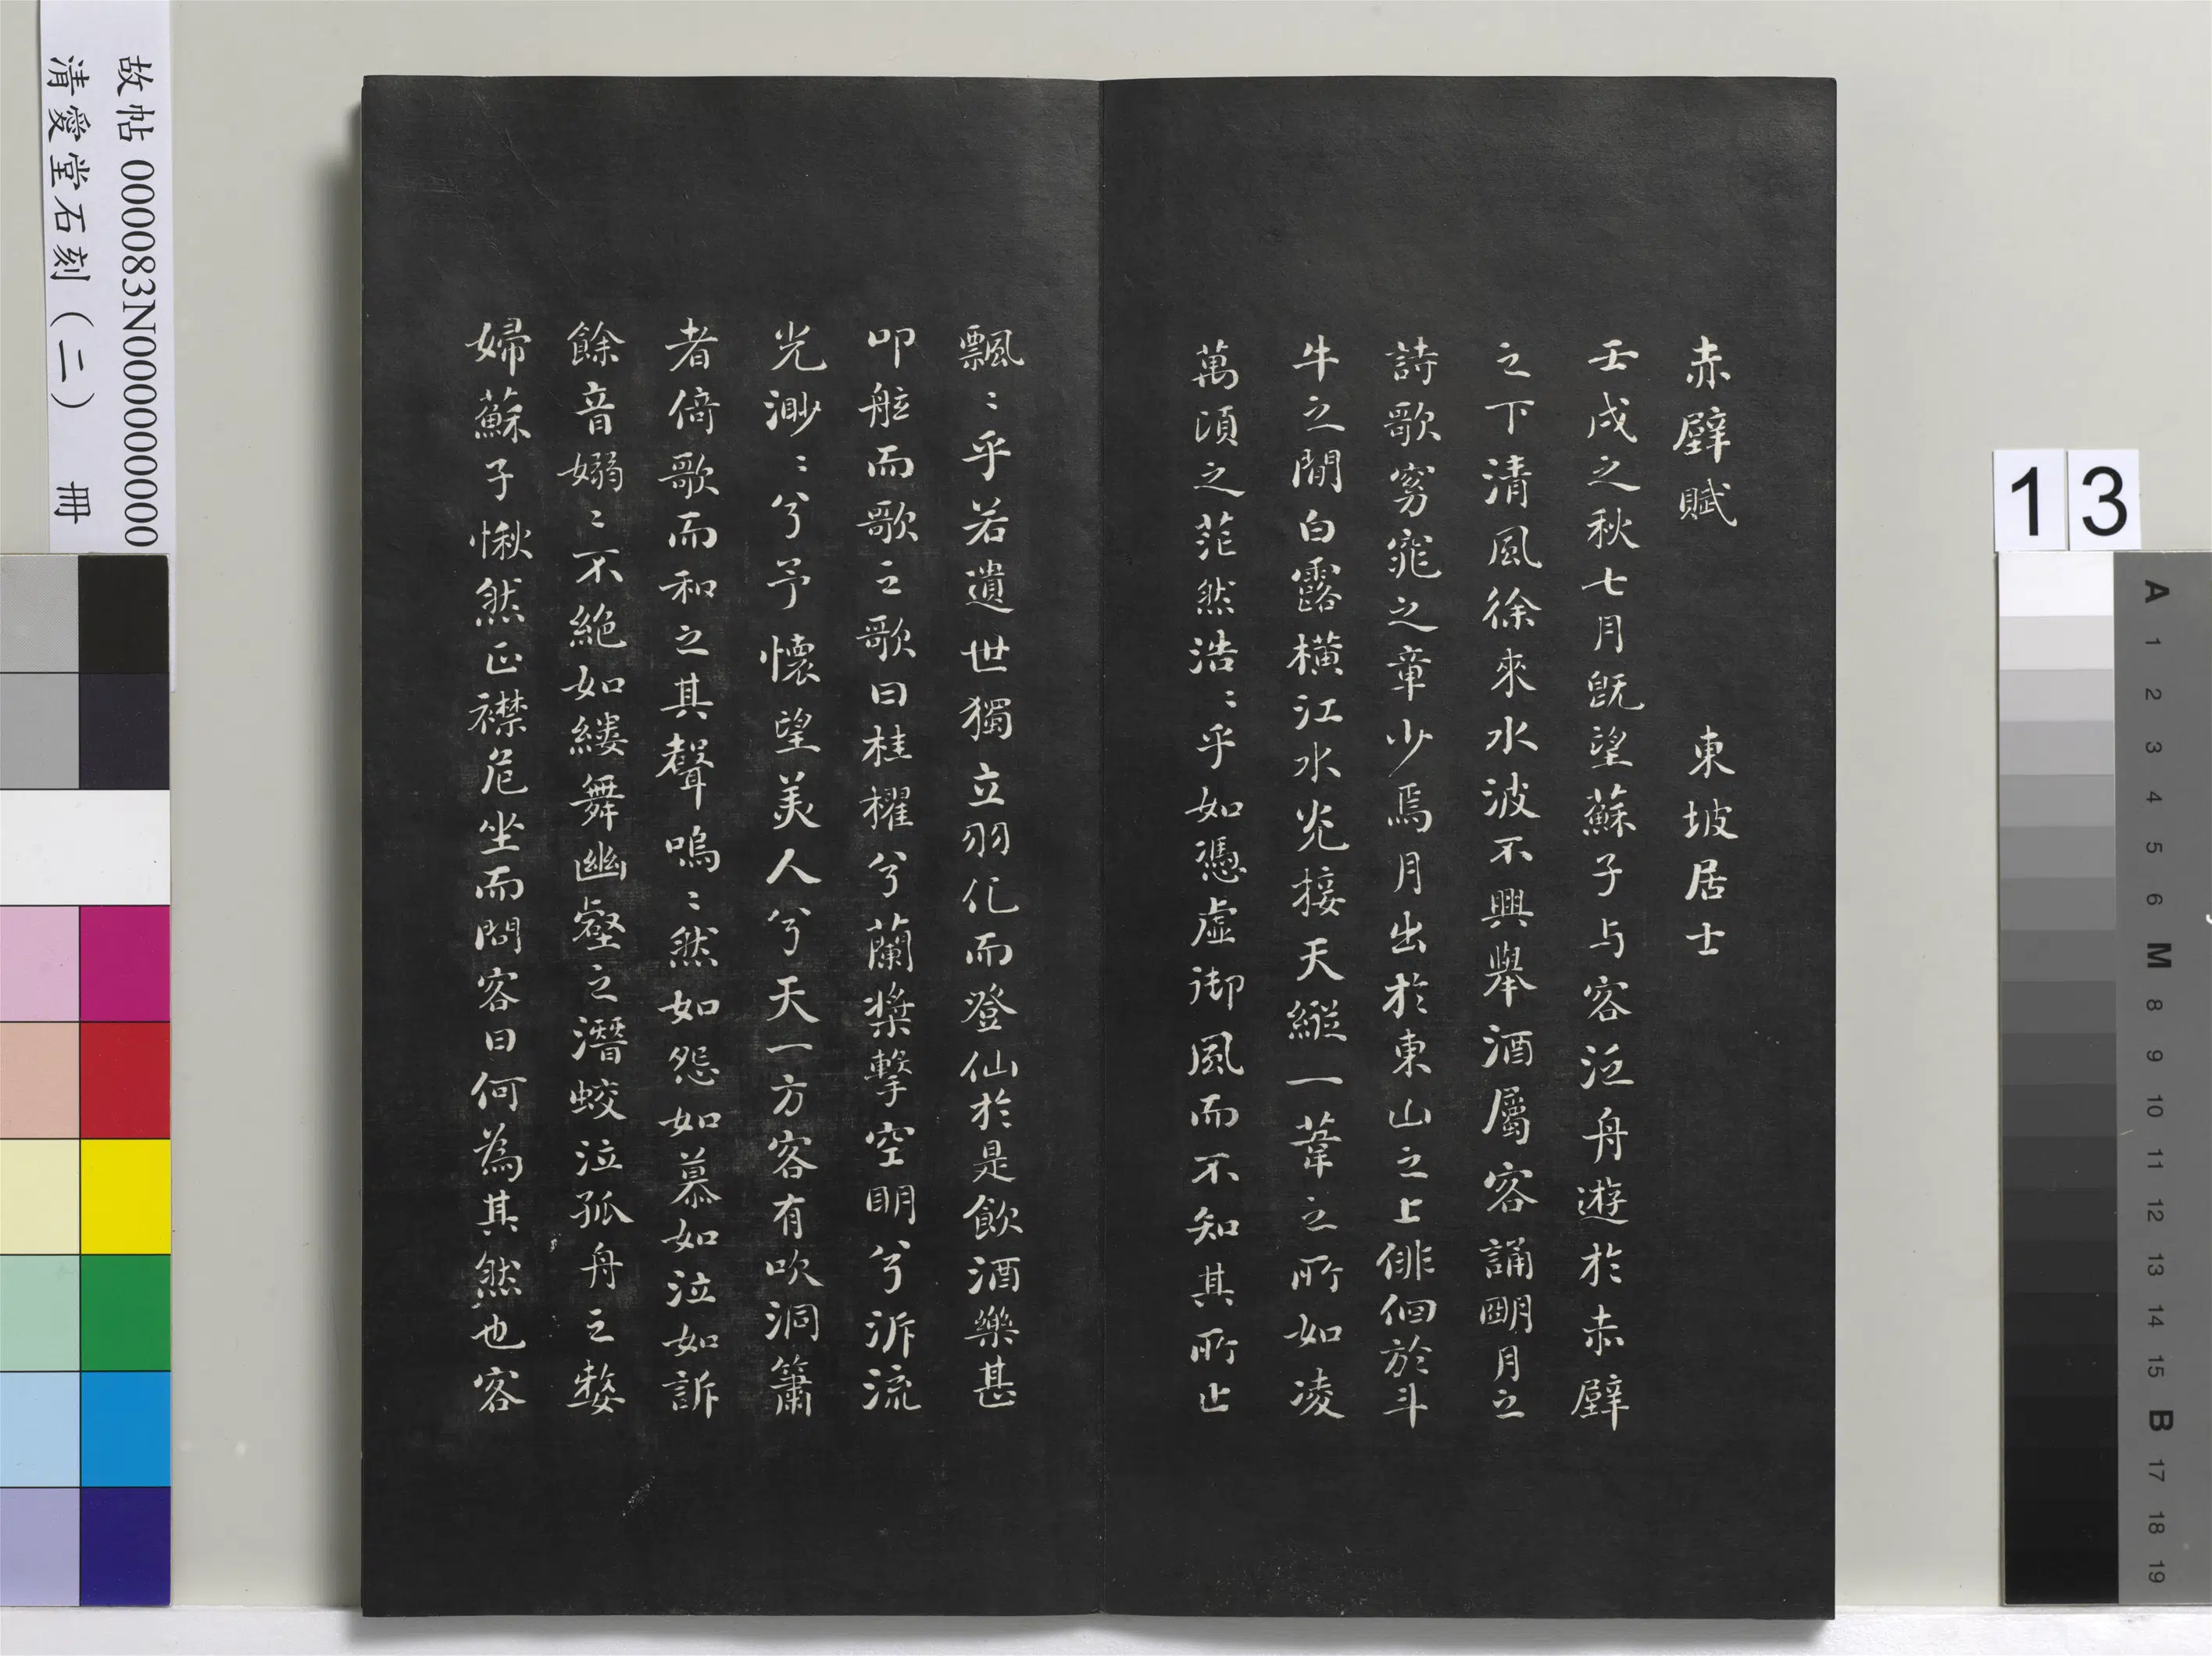 赤壁賦 東坡居士
壬戌之秋七月既望蘇子与客泛舟遊於赤壁
之下清風徐來水波不興舉酒屬客誦朙月之
詩歌窈窕之章少焉月出於東山之上俳佪於斗
牛之間白露橫江水光接天縱一葦之所如凌
萬頃之茫然浩〻乎如憑虛御風而不知其所止
飄〻乎若遺世獨立羽化而登仙於是飲酒樂甚
叩舷而歌之歌曰桂櫂兮蘭槳擊空眀兮泝流
光渺〻兮予懷望美人兮天一方客有吹洞簫
者倚歌而和之其聲嗚〻然如怨如慕如泣如訴
餘音嫋〻不絕如縷舞幽壑之潛蛟泣孤舟之嫠
婦蘇子愀然正襟危坐而問客曰何為其然也客
故帖 000083N000000000
清愛堂石刻(二) 冊
13
A
1
2
3
4
5
6
M
8
9
10
11
12
13
14
15
B
17
18
19